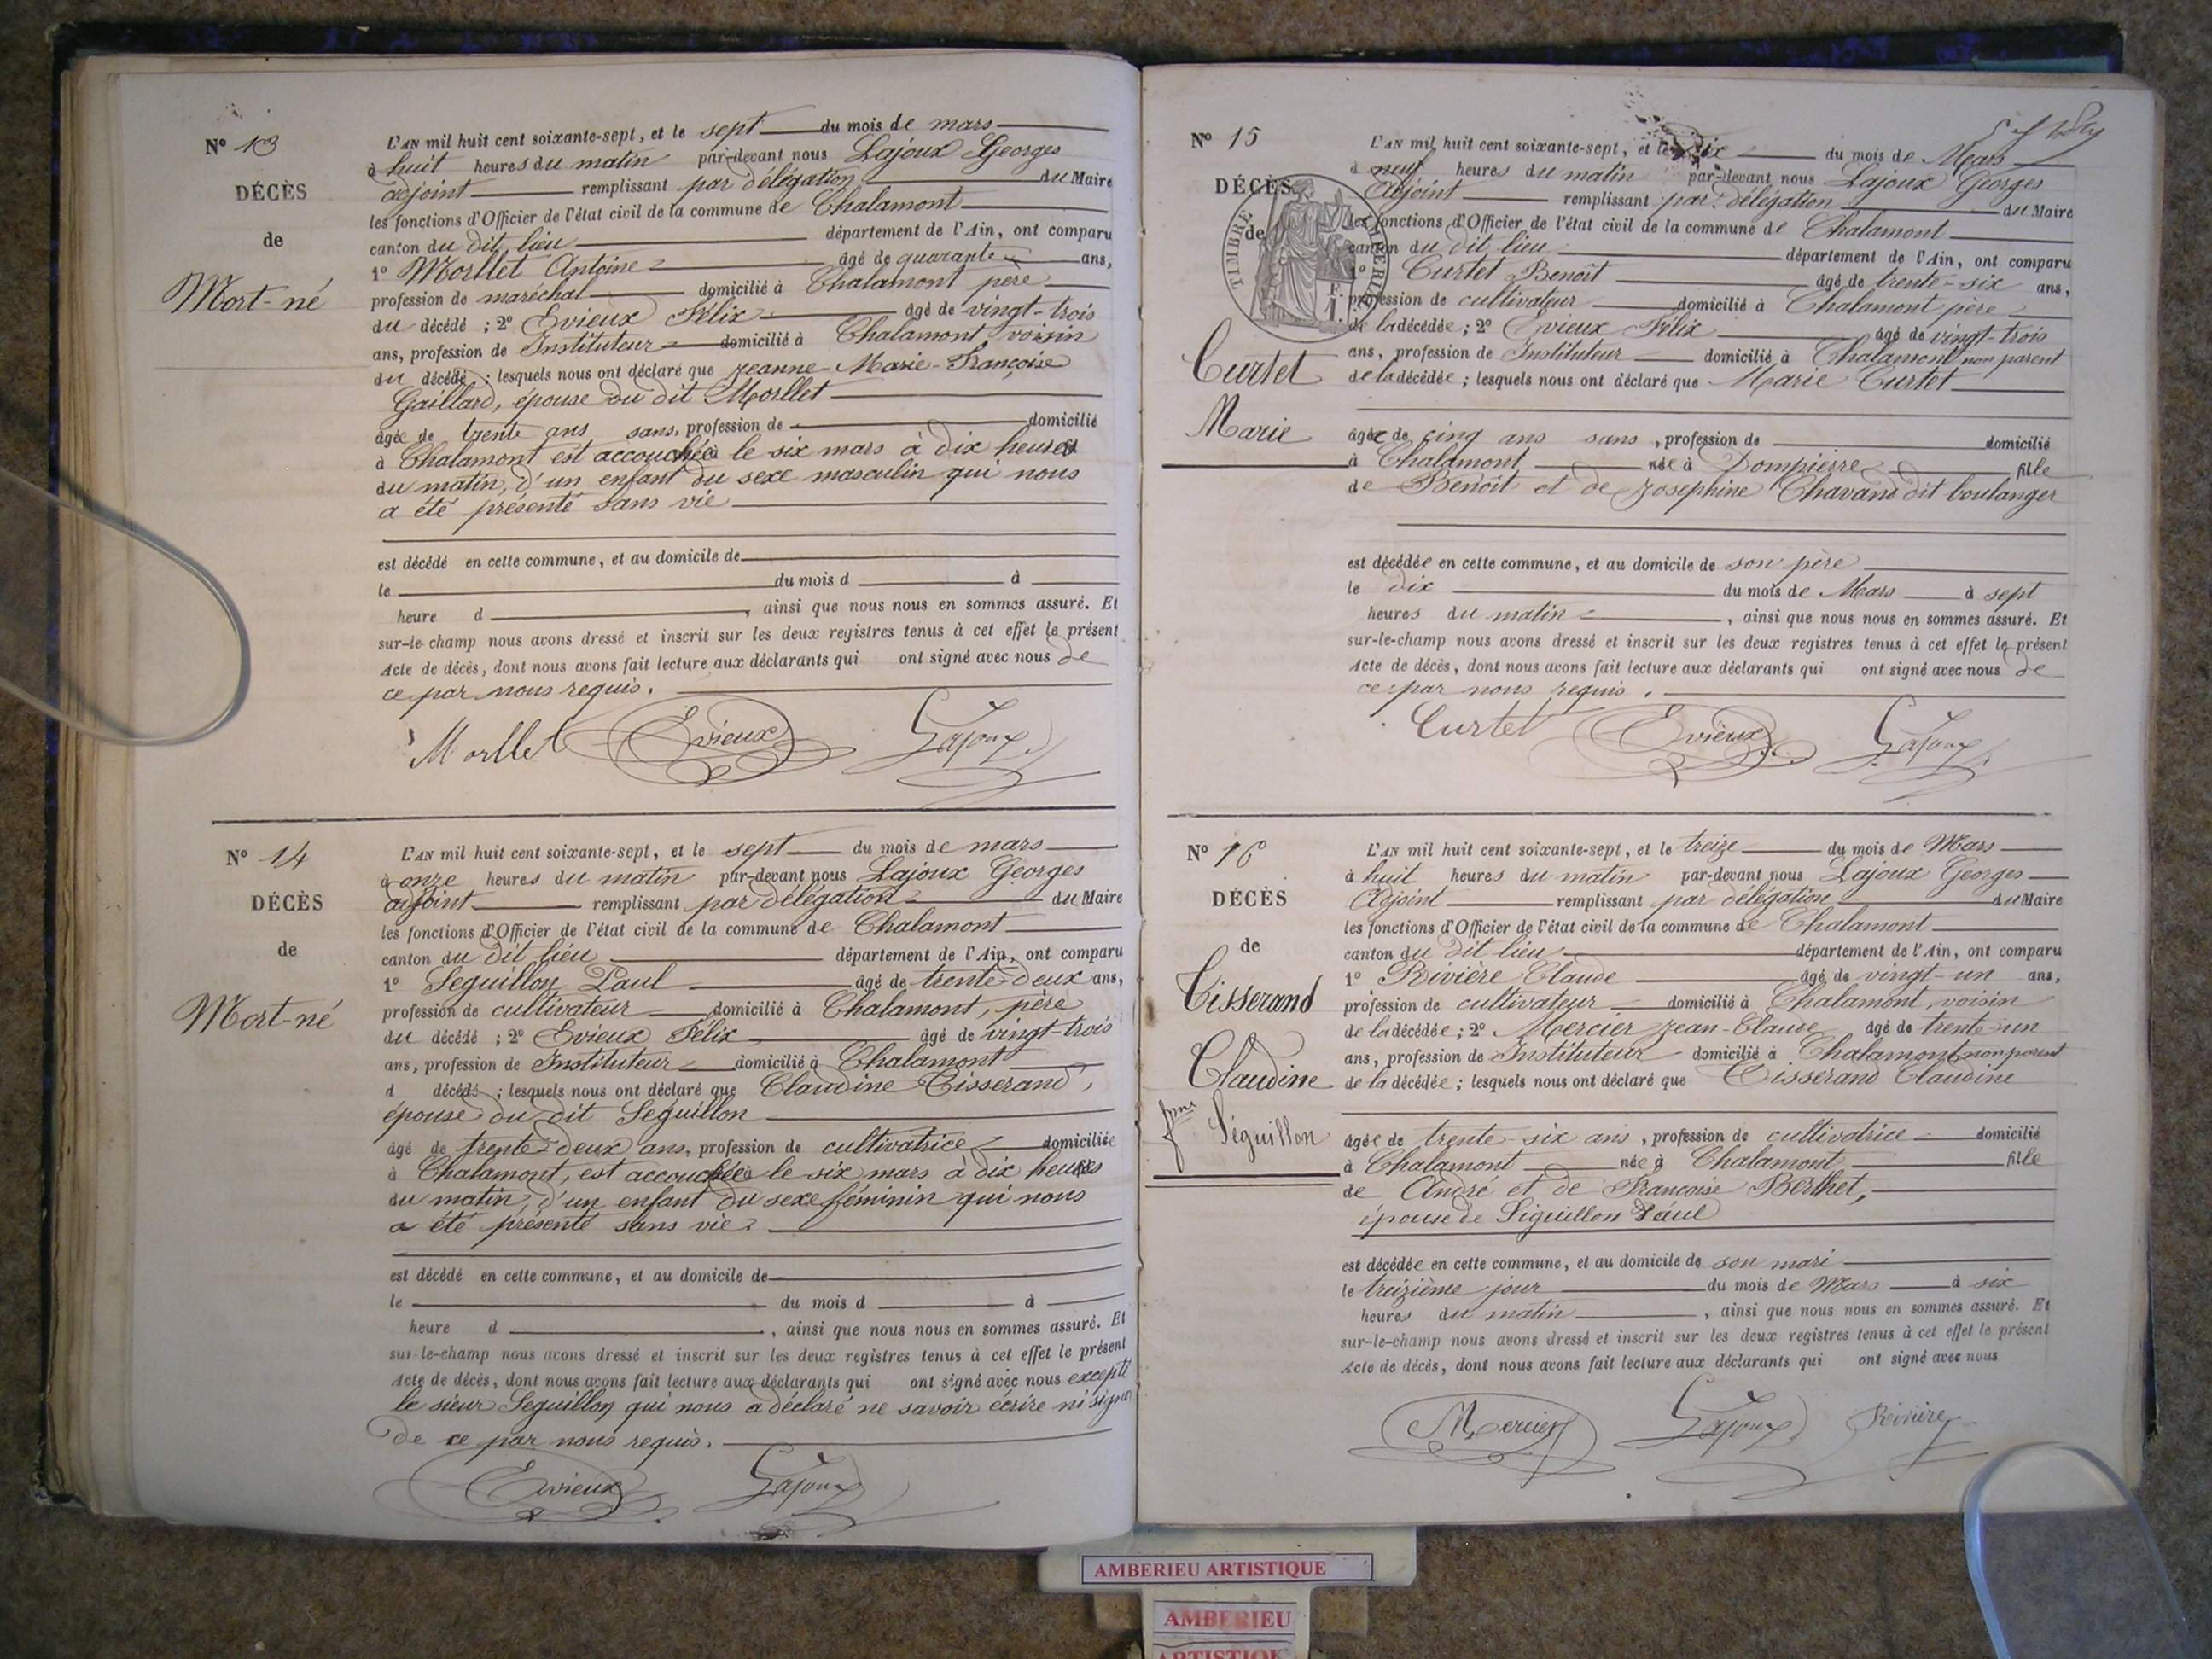 Nº 13
DÉCÈS
de
Mort-né
L'AN mil huit cent soixante-sept, et le sept du mois de mars
à huit heures du matin par-devant nous Lajoux Georges
adjoint remplissant par délégation du Maire
les fonctions d'Officier de l'état civil de la commune de Chalamont
canton du dit lieu département de l'Ain, ont comparu
1º Morllet Antoine âgé de quarante ans,
profession de maréchal domicilié à Chalamont père
du décédé ; 2º Evieux Félix âgé de vingt-trois
ans, profession de Instituteur domicilié à Chalamont voisin
du décédé ; lesquels nous ont déclaré que Jeanne-Marie-Françoise
Gaillard, épouse du dit Morllet
âgée de trente ans sans, profession de domicilié
à Chalamont est accouchée le six mars à dix heures
du matin, d'un enfant du sexe masculin qui nous
a été présenté sans vie
est décédé en cette commune, et au domicile de
le du mois d à
heure d , ainsi que nous nous en sommes assuré. Et
sur-le-champ nous avons dressé et inscrit sur les deux registres tenus à cet effet le présent
Acte de décès, dont nous avons fait lecture aux déclarants qui ont signé avec nous de
ce par nous requis.
Morllet Evieux Lajoux
Nº 14
DÉCÈS
de
Mort-né
L'AN mil huit cent soixante-sept, et le sept du mois de mars
à onze heures du matin par-devant nous Lajoux Georges
adjoint remplissant par délégation du Maire
les fonctions d'Officier de l'état civil de la commune de Chalamont
canton du dit lieu département de l'Ain, ont comparu
1º Seguillon Paul âgé de trente-deux ans,
profession de cultivateur domicilié à Chalamont, père
du décédé ; 2º Evieux Félix âgé de vingt-trois
ans, profession de Instituteur domicilié à Chalamont
d décédé ; lesquels nous ont déclaré que Claudine Tisserand,
épouse du dit Seguillon
âgé de trente-deux ans, profession de cultivatrice domiciliée
à Chalamont, est accouchée le six mars à dix heures
du matin, d'un enfant du sexe féminin qui nous
a été présenté sans vie
est décédé en cette commune, et au domicile de
le du mois d à
heure d , ainsi que nous nous en sommes assuré. Et
sur-le-champ nous avons dressé et inscrit sur les deux registres tenus à cet effet le présent
Acte de décès, dont nous avons fait lecture aux déclarants qui ont signé avec nous excepté
le sieur Seguillon qui nous a déclaré ne savoir écrire ni signer
de ce par nous requis.
Evieux Lajoux
Nº 15
DÉCÈS
de
Curtet
Marie
TIMBRE IMPERIAL
1 F.
L'AN mil huit cent soixante-sept, et le dix du mois de Mars
à neuf heures du matin par-devant nous Lajoux Georges
Adjoint remplissant par délégation du Maire
les fonctions d'Officier de l'état civil de la commune de Chalamont
canton du dit lieu département de l'Ain, ont comparu
1º Curtet Benoît âgé de trente-six ans,
profession de cultivateur domicilié à Chalamont père
de la décédée ; 2º Evieux Félix âgé de vingt-trois
ans, profession de Instituteur domicilié à Chalamont non parent
de la décédée ; lesquels nous ont déclaré que Marie Curtet
âgée de cinq ans sans, profession de domicilié
à Chalamont née à Dompierre fille
de Benoît et de Josephine Chavand dit boulanger
est décédée en cette commune, et au domicile de son père
le dix du mois de Mars à sept
heures du matin , ainsi que nous nous en sommes assuré. Et
sur-le-champ nous avons dressé et inscrit sur les deux registres tenus à cet effet le présent
Acte de décès, dont nous avons fait lecture aux déclarants qui ont signé avec nous de
ce par nous requis.
Curtet Evieux Lajoux
Nº 16
DÉCÈS
de
Tisserand
Claudine
fme Séguillon
L'AN mil huit cent soixante-sept, et le treize du mois de Mars
à huit heures du matin par-devant nous Lajoux Georges
Adjoint remplissant par délégation du Maire
les fonctions d'Officier de l'état civil de la commune de Chalamont
canton du dit lieu département de l'Ain, ont comparu
1º Rivière Claude âgé de vingt-un ans,
profession de cultivateur domicilié à Chalamont, voisin
de la décédée ; 2º Mercier Jean-Claude âgé de trente-un
ans, profession de Instituteur domicilié à Chalamont non parent
de la décédée ; lesquels nous ont déclaré que Tisserand Claudine
âgée de trente-six ans, profession de cultivatrice domicilié
à Chalamont née à Chalamont fille
de André et de Françoise Berthet,
épouse de Siguillon Paul
est décédée en cette commune, et au domicile de son mari
le treizième jour du mois de Mars à six
heures du matin , ainsi que nous nous en sommes assuré. Et
sur-le-champ nous avons dressé et inscrit sur les deux registres tenus à cet effet le présent
Acte de décès, dont nous avons fait lecture aux déclarants qui ont signé avec nous
Mercier Lajoux Rivière
AMBERIEU ARTISTIQUE
AMBERIEU
ARTISTIQUE